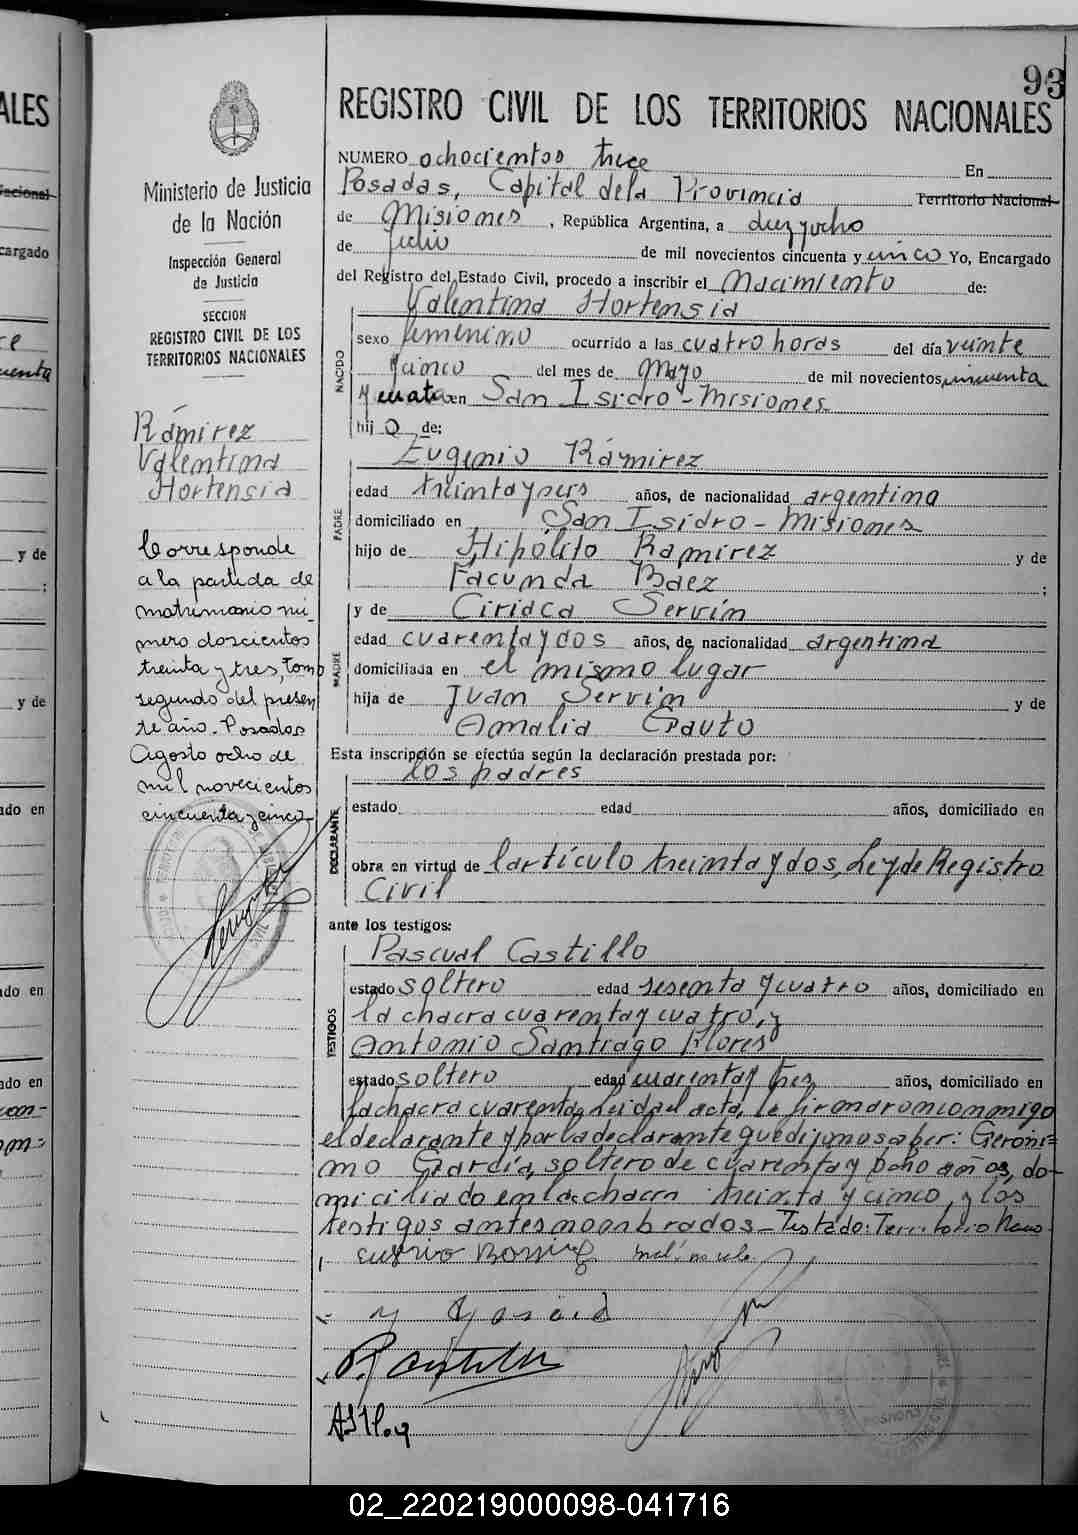 93
REGISTRO CIVIL DE LOS TERRITORIOS NACIONALES
NUMERO ochocientos trece En
Posadas, Capital dela Provincia Territorio Nacional
de Misiones, República Argentina, a diez y ocho
de Julio de mil novecientos cincuenta y cinco Yo, Encargado
del Registro del Estado Civil, procedo a inscribir el Nacimiento de:
Valentina Hortensia
NACIDO
sexo femenino ocurrido a las cuatro horas del día veinte
y cinco del mes de Mayo de mil novecientos cincuenta
y cuatro en San Isidro - Misiones
hij a de:
Eugenio Rámirez
PADRE
edad treinta y seis años, de nacionalidad argentina
domiciliado en San Isidro - Misiones
hijo de Hipólito Ramirez y de
Facunda Baez ;
y de Ciriaca Servín
MADRE
edad cuarenta y dos años, de nacionalidad argentina
domiciliada en el mismo lugar
hija de Juan Servín y de
Amalia Gauto
Esta inscripción se efectúa según la declaración prestada por:
los padres
DECLARANTE
estado edad años, domiciliado en
obra en virtud de lartículo treinta y dos, Ley de Registro
Civil
ante los testigos:
Pascual Castillo
TESTIGOS
estado soltero edad sesenta y cuatro años, domiciliado en
la chacra cuarenta y cuatro, y
Antonio Santiago Flores
estado soltero edad cuarenta y tres años, domiciliado en
lachacra cuarenta, Leida el acta, la firmaron conmigo
el declarante y por la declarante que dijo no saber: Geroni=
mo García, soltero de cuarenta y ocho años, do-
miciliado en la chacra treinta y cinco y los
testigos antes nombrados - Testado: Territorio Nacio
nal: no vale.
Ministerio de Justicia
de la Nación
Inspección General
de Justicia
SECCION
REGISTRO CIVIL DE LOS
TERRITORIOS NACIONALES
Rámirez
Valentina
Hortensia
Corresponde
a la partida de
matrimonio nú-
mero doscientos
treinta y tres, tomo
segundo del presen
te año. Posadas
Agosto ocho de
mil novecientos
cincuenta y cinco
ALES
Nacional
cargado
y de
;
y de
ado en
ado en
ado en
02_220219000098-041716